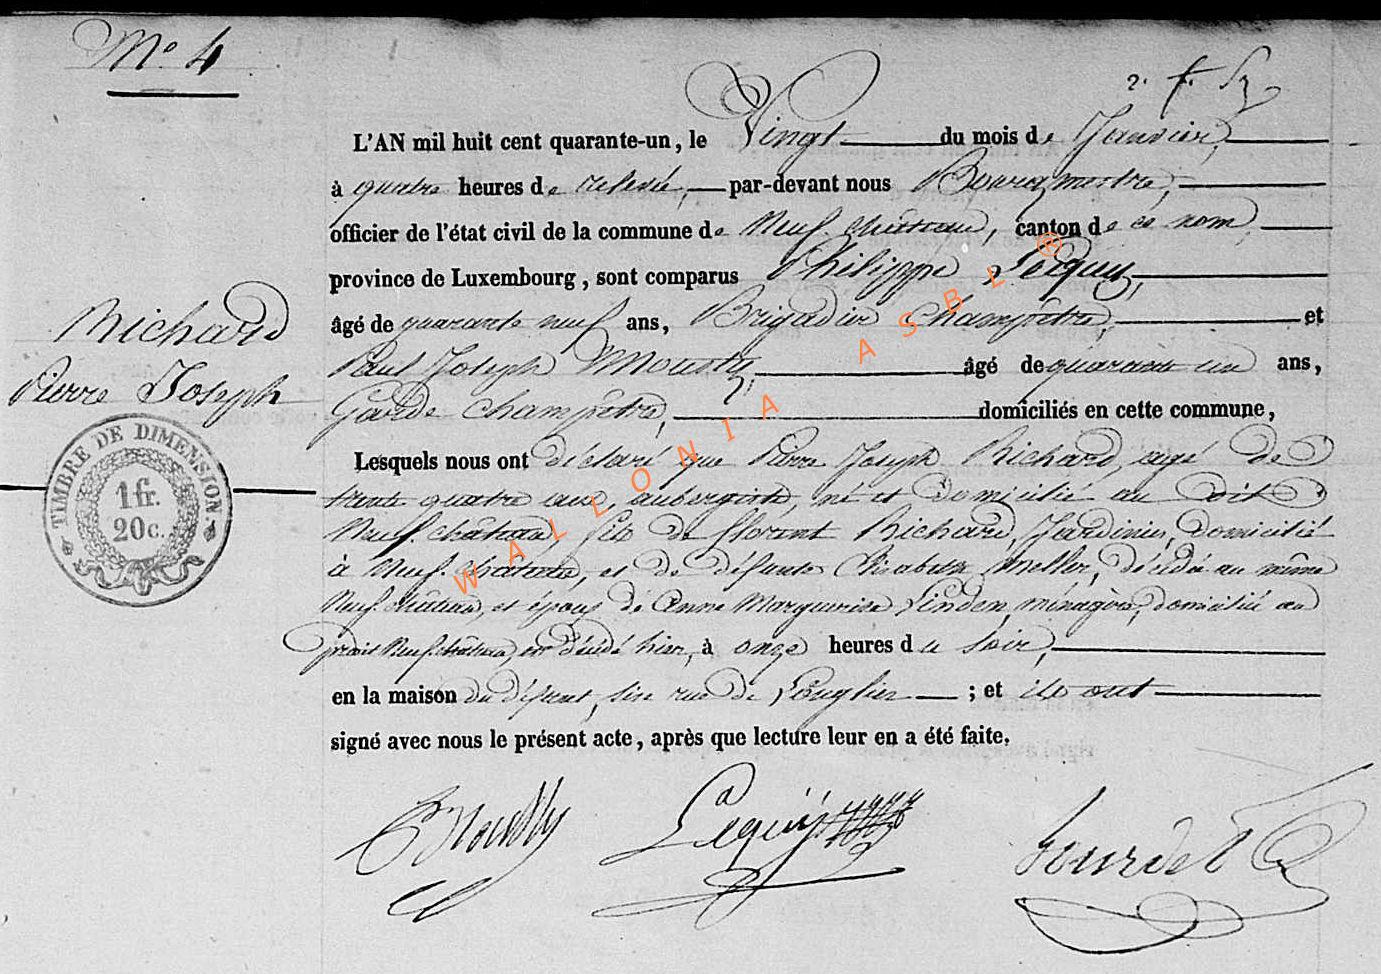 N.º 4
L'AN mil huit cent quarante-un, le Vingt du mois de Janvier,
à quatre heures de relevée, par-devant nous Bourgmestre,
officier de l'état civil de la commune de Neufchâteau, canton de ce nom,
province de Luxembourg, sont comparus Philippe Lequy,
âgé de quarante neuf ans, Brigadier champêtre, et
Paul Joseph Mousty, âgé de quarante un ans,
Garde champêtre, domiciliés en cette commune,
Richard
Pierre Joseph
TIMBRE DE DIMENSION.
1 fr.
20c.
Lesquels nous ont déclaré que Pierre Joseph Richard, âgé de
trente quatre ans, aubergiste, né et domicilié au dit
Neufchâteau, fils de florent Richard, Jardinier, domicilié
à Neufchâteau, et de défunte Elisabeth Meller, décédée au même
Neufchâteau, et époux de Anne Marguerite Linden, ménagère, domiciliée au
prédit Neufchâteau, est décédé hier, à onze heures du soir,
en la maison du défunt, sise rue de Longlier ; et ils ont
signé avec nous le présent acte, après que lecture leur en a été faite.
PMousty Lequy Gourdet
WALLONIA ASBL ®